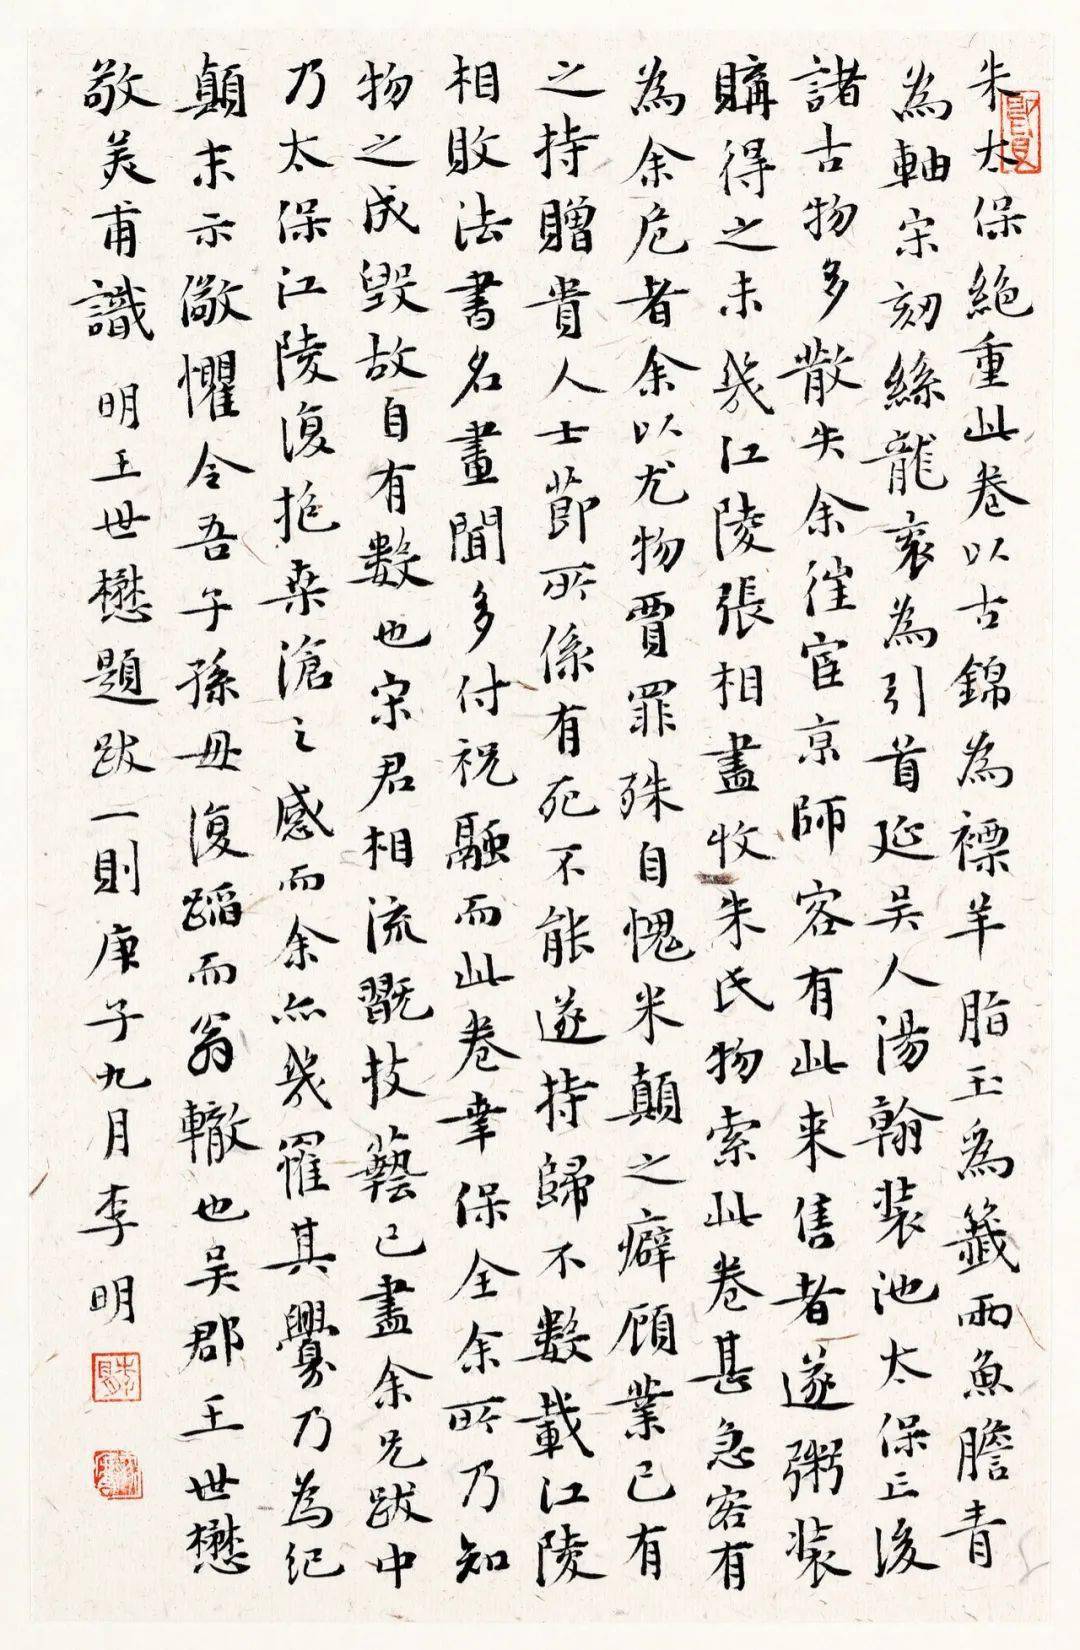 朱太保絕重此卷以古錦為褾羊脂玉為籤兩魚膽青
為軸宋刻絲龍袞為引首延吳人湯翰裝池太保亡後
諸古物多散失余往宦京師客有此来售者遂粥裝
購得之未幾江陵張相盡收朱氏物索此卷甚急客有
為余危者余以尤物賈罪殊自愧米顛之癖顧業已有
之持贈貴人士節所係有死不能遂持歸不數載江陵
相敗法書名畫聞多付祝融而此卷幸保全余所乃知
物之成毀故自有數也宋君相流翫技藝已盡余兄跋中
乃太保江陵復抱桑滄之感而余亦幾罹其釁乃為紀
顛末示儆懼令吾子孫毋復蹈而翁轍也吳郡王世懋
敬美甫識 明王世懋題跋一則庚子九月李明